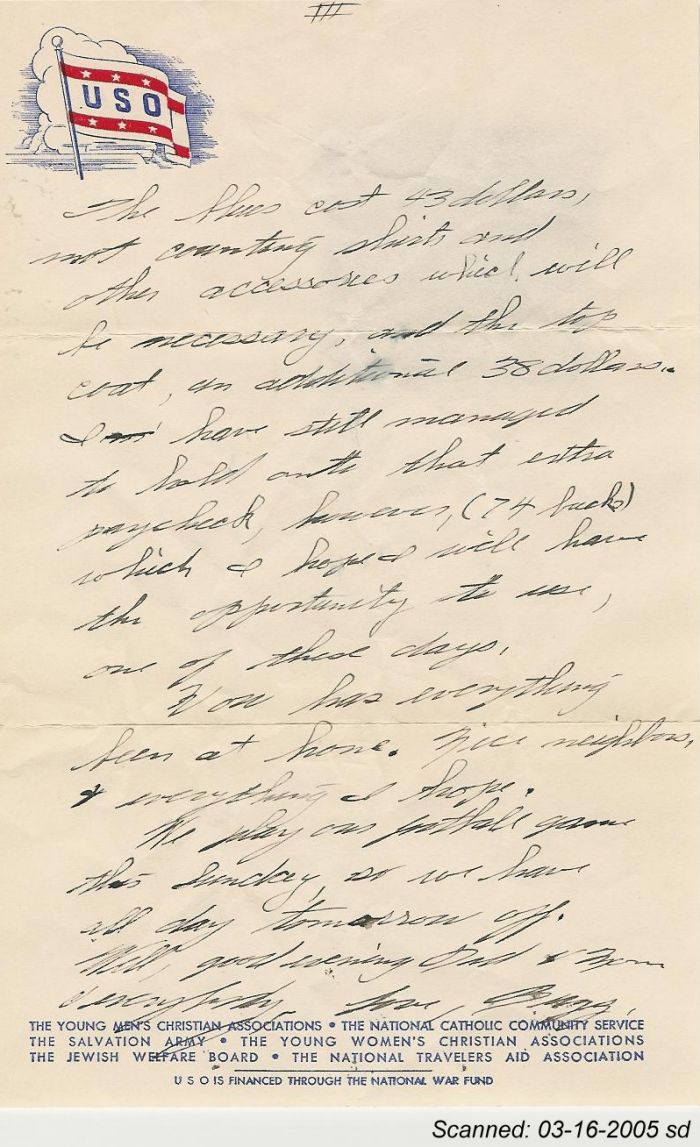 III
USO
The blues cost 43 dollars,
not counting shirts and
other accessories which will
be necessary, and the top
coat, an additional 38 dollars.
I have still managed
to hold onto that extra
paycheck, however, (74 bucks)
which I hope I will have
the opportunity to use,
one of these days.
How has everything
been at home. Nice neighbors,
& everything I hope.
We play our football game
this Sunday, so we have
all day tomorrow off.
Well, good evening Dad & Mom
& everybody, Love,
THE YOUNG MEN'S CHRISTIAN ASSOCIATIONS • THE NATIONAL CATHOLIC COMMUNITY SERVICE
THE SALVATION ARMY • THE YOUNG WOMEN'S CHRISTIAN ASSOCIATIONS
THE JEWISH WELFARE BOARD • THE NATIONAL TRAVELERS AID ASSOCIATION
U S O IS FINANCED THROUGH THE NATIONAL WAR FUND
Scanned: 03-16-2005 sd